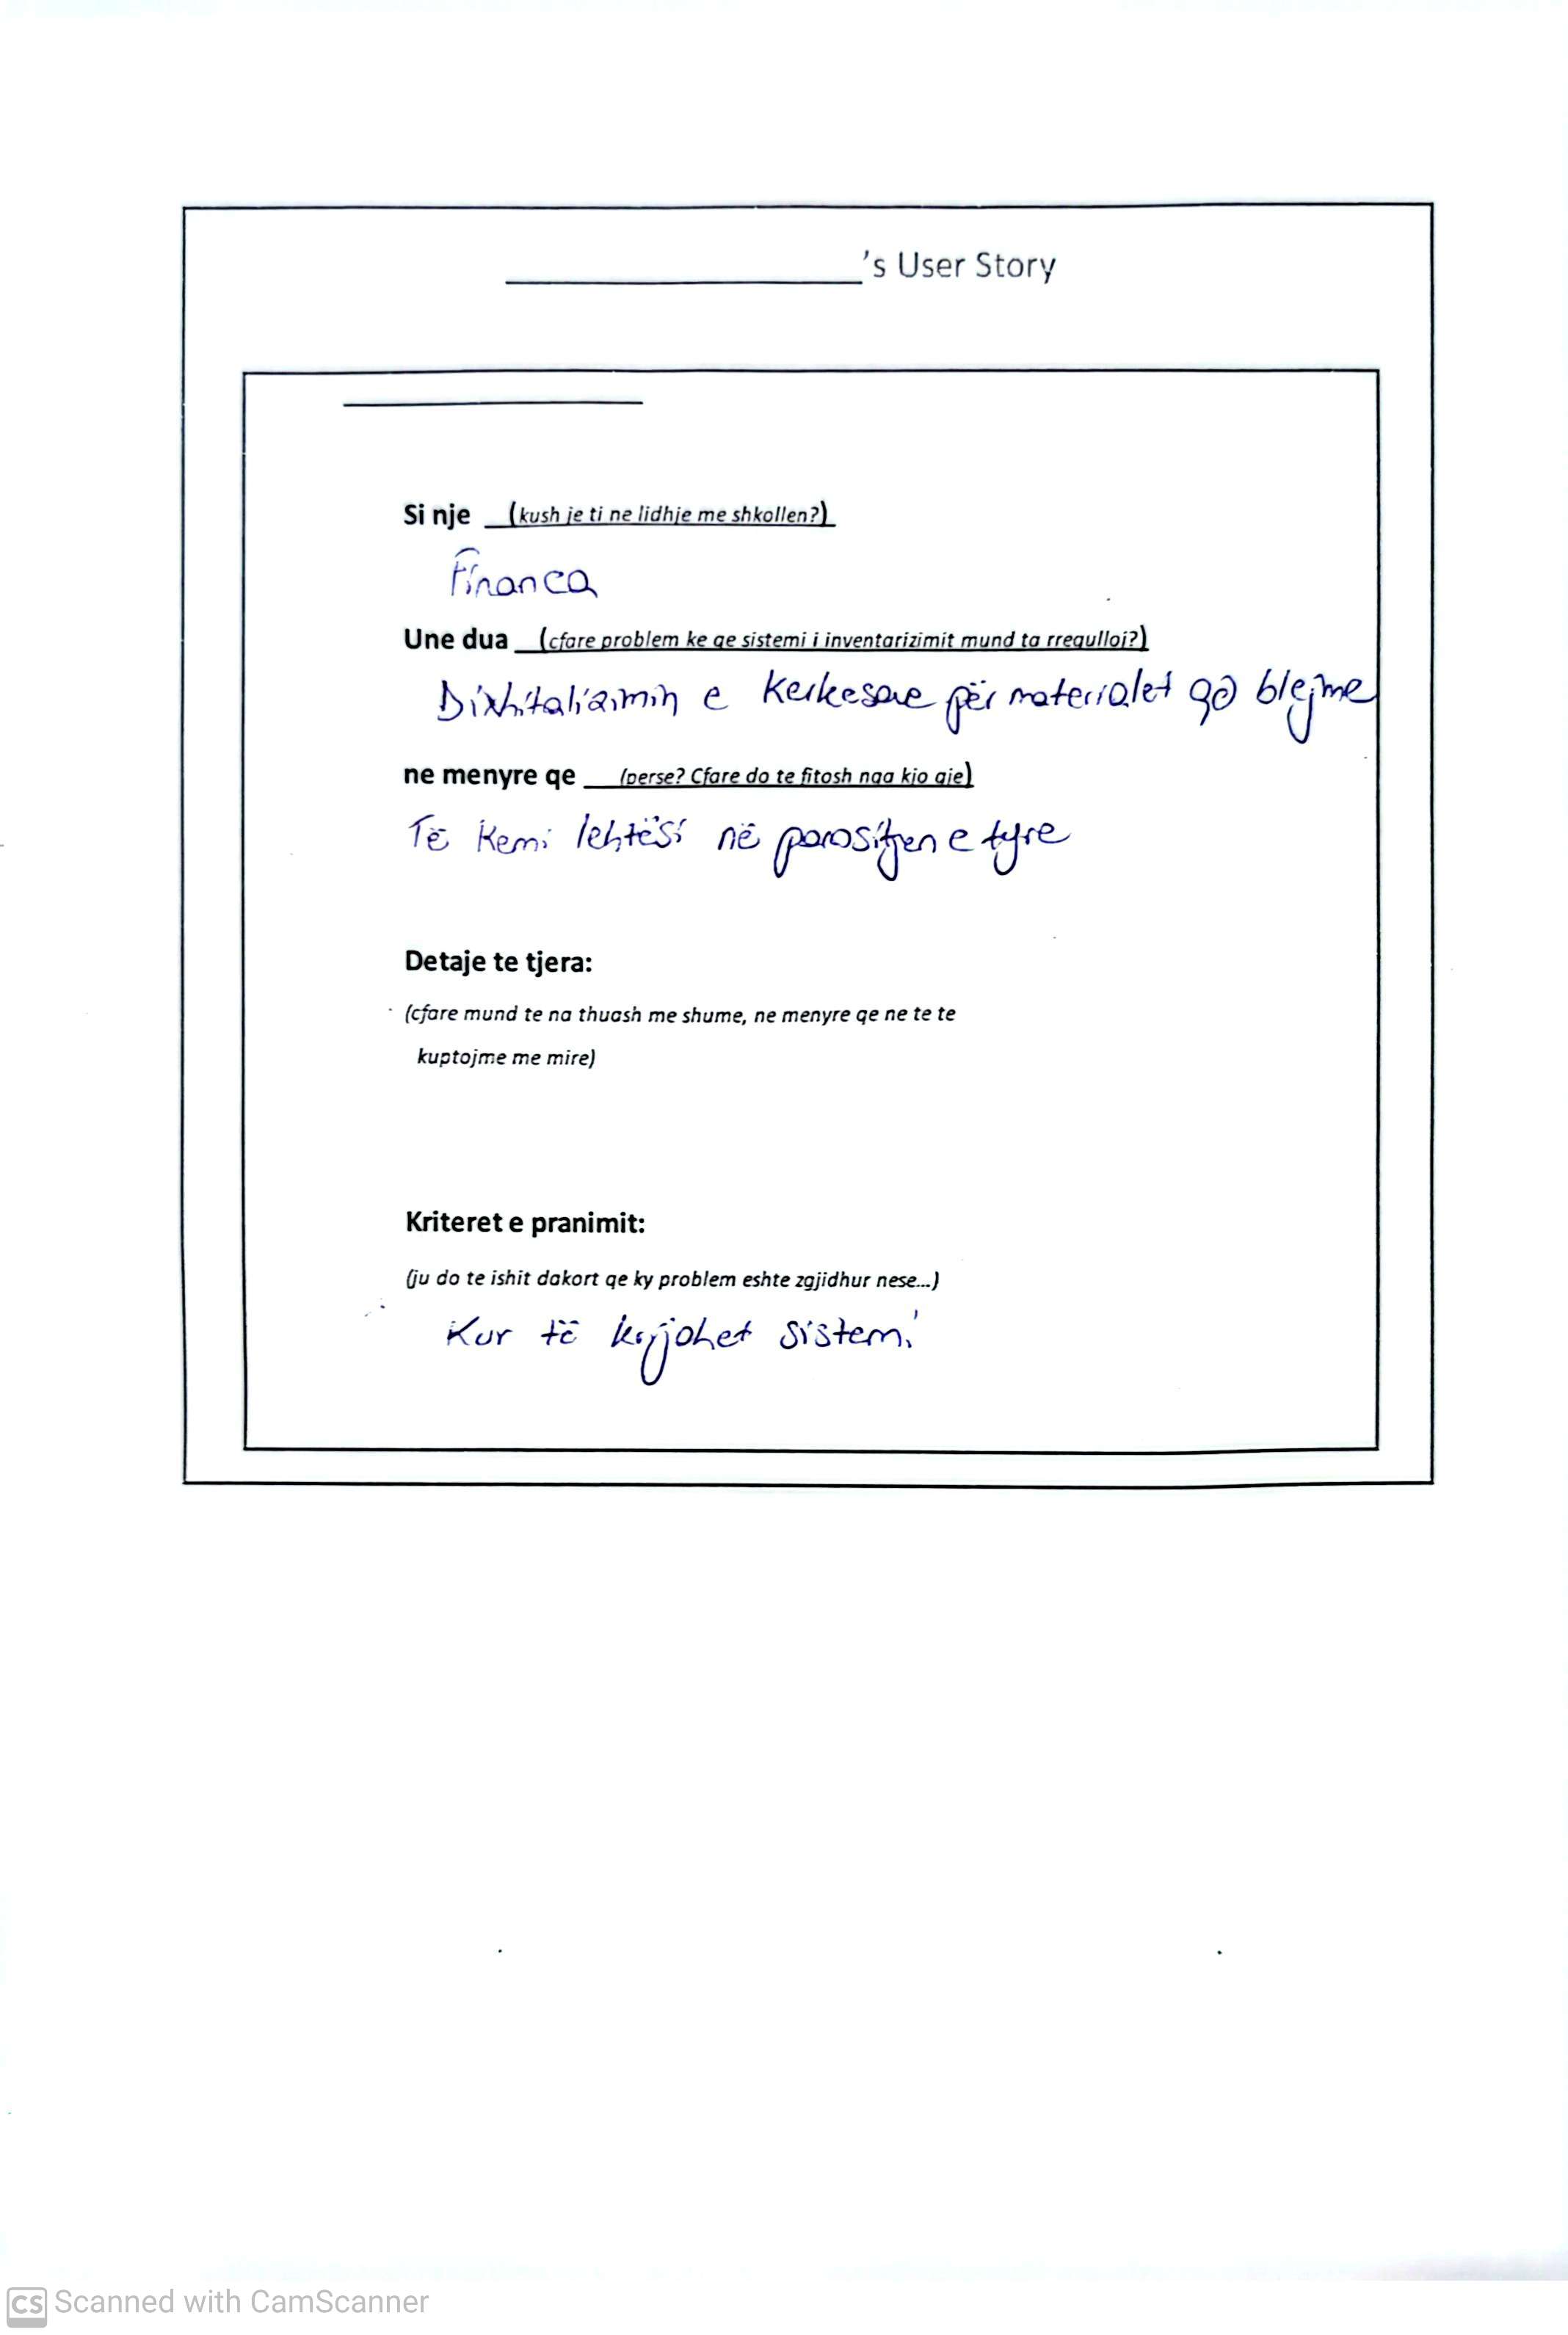 ______________'s User Story
Si nje __(kush je ti ne lidhje me shkollen?)
Financa
Une dua __(cfare problem ke qe sistemi i inventarizimit mund ta rregulloj?)
Dixhitalizimin e kerkesave për materialet që blejme
ne menyre qe ___(perse? Cfare do te fitosh nga kjo gje)
Të kemi lehtësi në porositjen e tyre
Detaje te tjera:
(cfare mund te na thuash me shume, ne menyre qe ne te te
kuptojme me mire)
Kriteret e pranimit:
(ju do te ishit dakort qe ky problem eshte zgjidhur nese...)
Kur të krijohet sistemi
CS Scanned with CamScanner